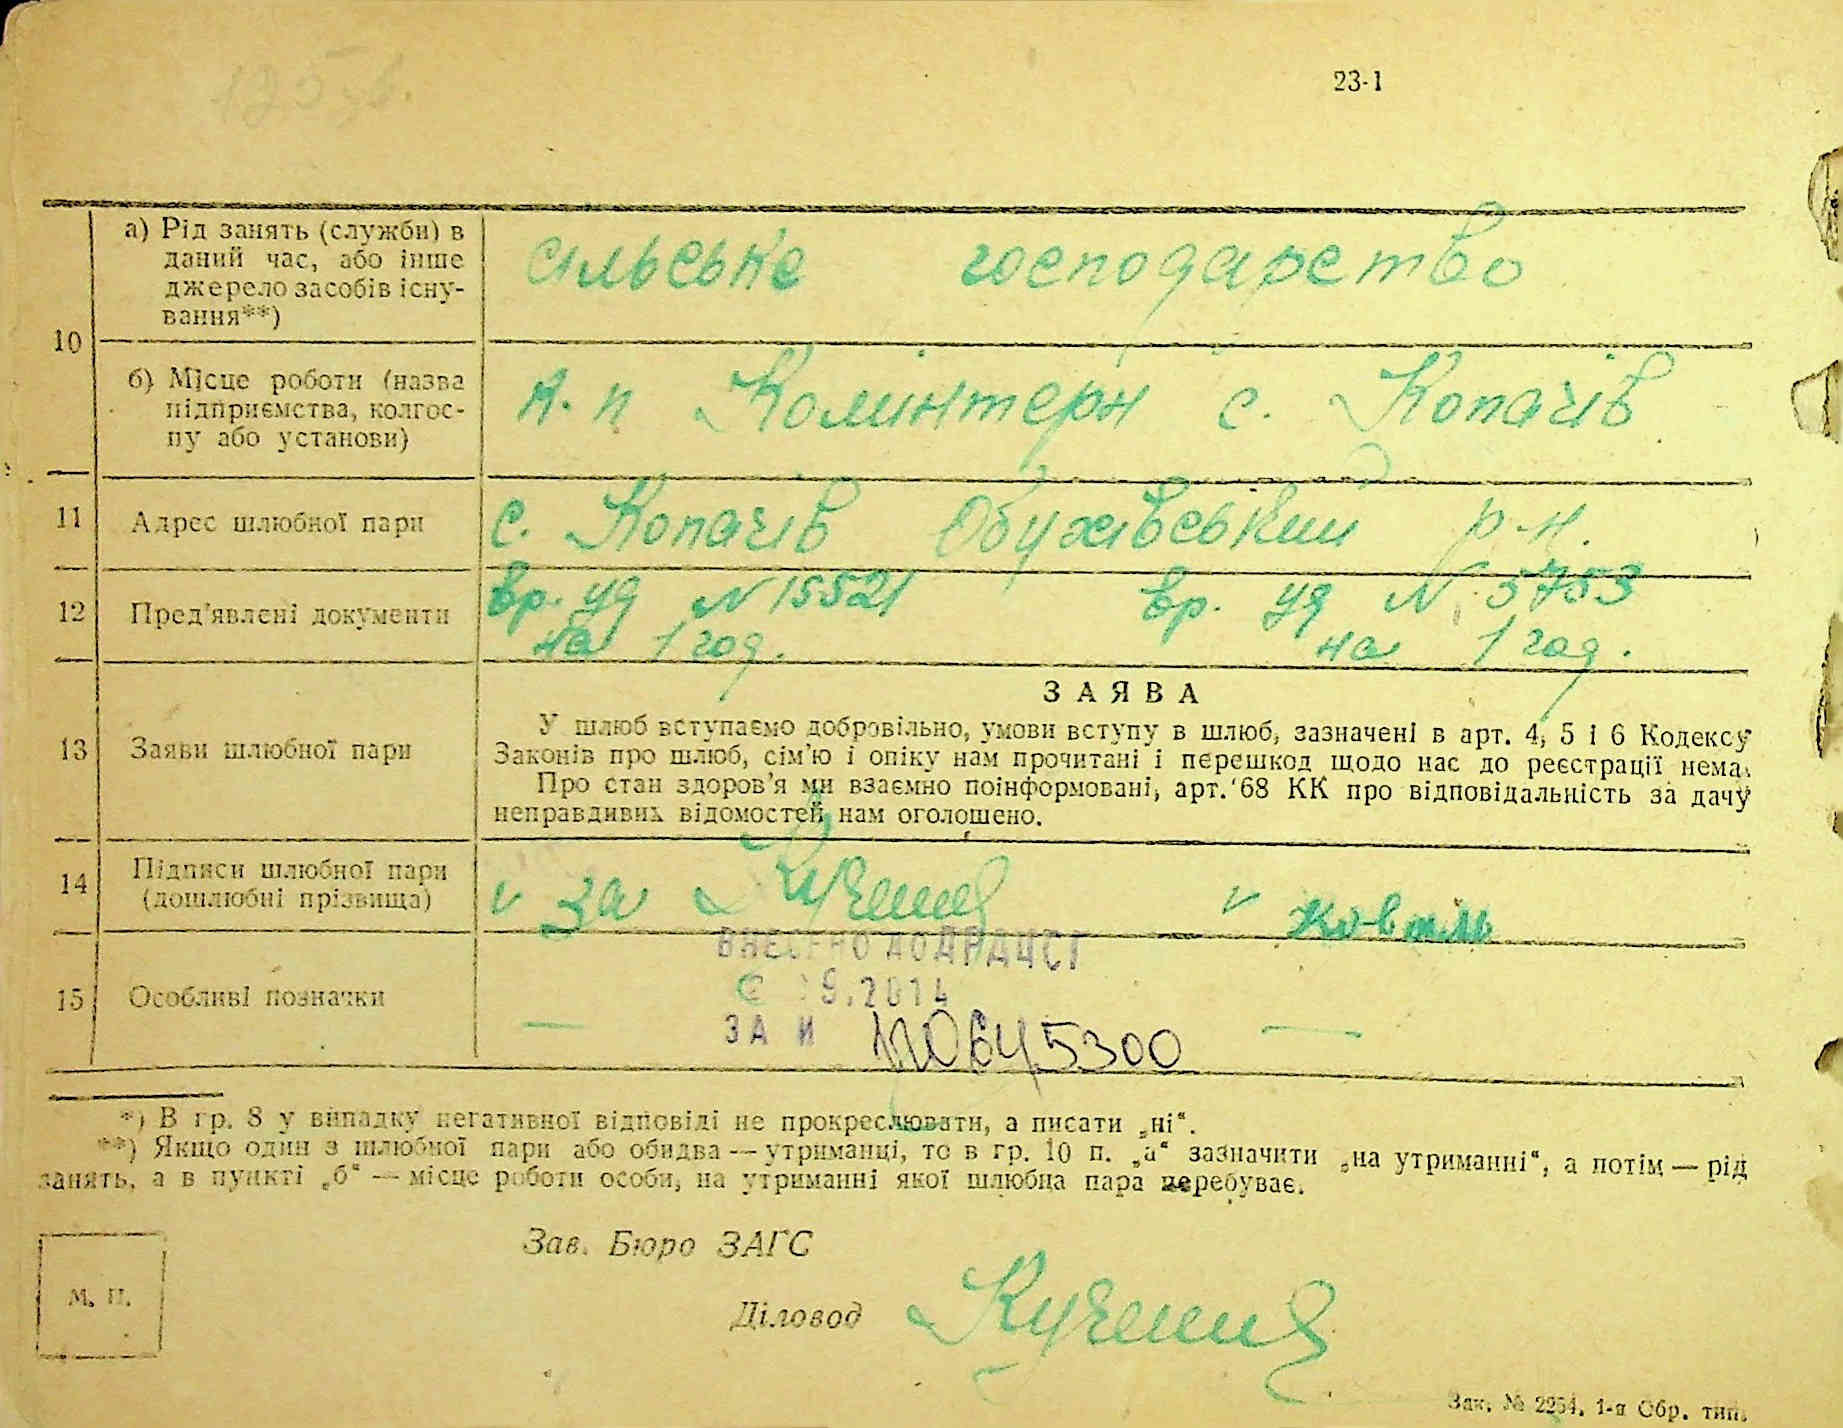 23-1
10
а) Рід занять (служби) в
даний час, або інше
джерело засобів існу-
вання**)
сільське господарство
б) Місце роботи (назва
підприємства, колгос-
пу або установи)
к. п Комінтерн с. Копачів
11 Адрес шлюбної пари с. Копачів Обухівський р-н.
12 Пред'явлені документи вр. уд N 15521 вр. уд N 5753
на 1 год. на 1 год.
13 Заяви шлюбної пари
ЗАЯВА
У шлюб вступаємо добровільно, умови вступу в шлюб, зазначені в арт. 4, 5 і 6 Кодексу
Законів про шлюб, сім'ю і опіку нам прочитані і перешкод щодо нас до реєстрації нема.
Про стан здоров'я ми взаємно поінформовані, арт. 68 КК про відповідальність за дачу
неправдивих відомостей нам оголошено.
14 Підписи шлюбної пари
(дошлюбні прізвища)
за
15 Особливі позначки — —
ВНЕСЕНО ДО ДРАЦСГ
9.2014
ЗА
*) В гр. 8 у випадку негативної відповіді не прокреслювати, а писати „ні“.
**) Якщо один з шлюбної пари або обидва — утриманці, то в гр. 10 п. „а“ зазначити „на утриманні“, а потім — рід
занять, а в пункті „б“ — місце роботи особи, на утриманні якої шлюбна пара перебуває.
Зав. Бюро ЗАГС
М. П.
Діловод
Зак. № 2254. 1-я Обр. тип.